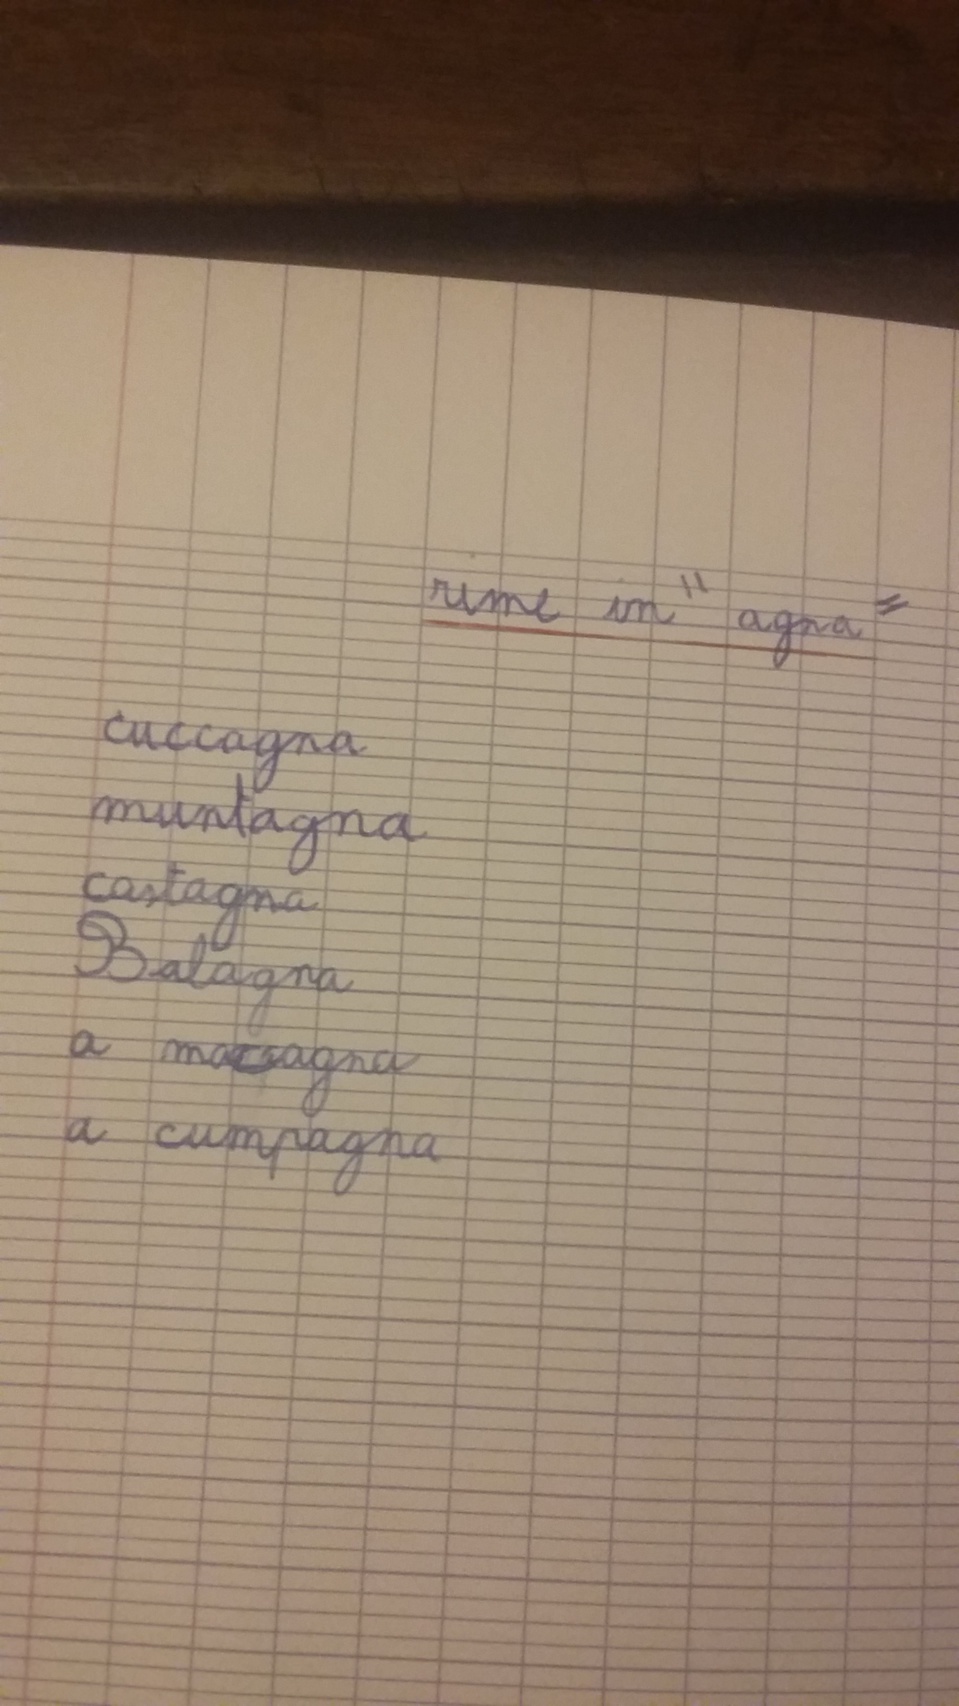 rime in "agna"
cuccagna
muntagna
castagna
Balagna
a
a cumpagna